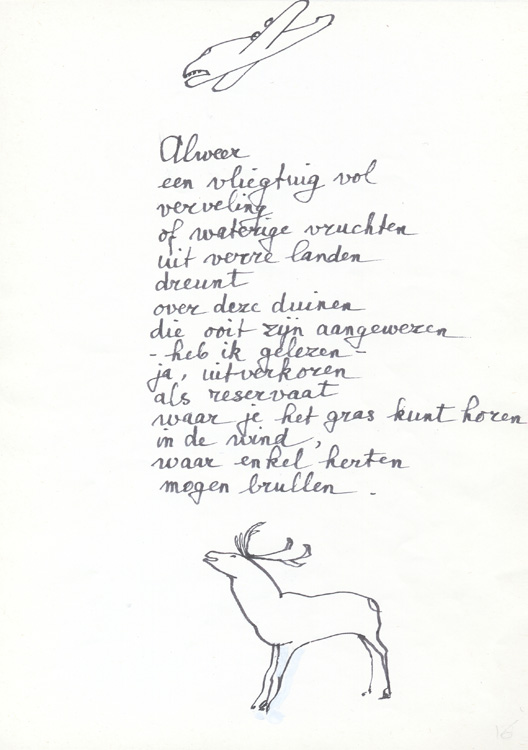 Alweer
een vliegtuig vol
verveling
of waterige vruchten
uit verre landen
dreunt
over deze duinen
die ooit zijn aangewezen
- heb ik gelezen -
ja, uitverkoren
als reservaat
waar je het gras kunt horen
in de wind,
waar enkel herten
mogen brullen.
16